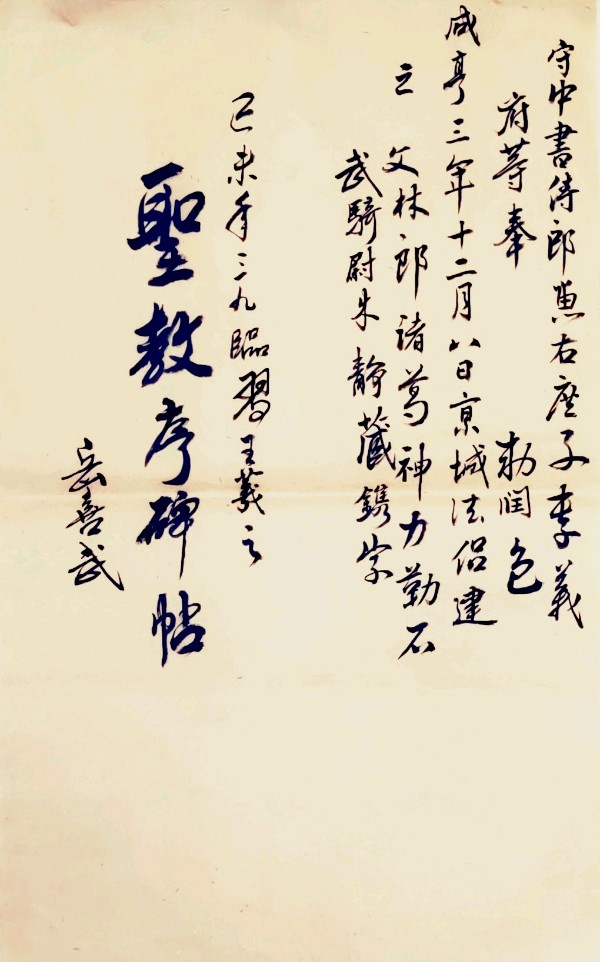 守中書侍郎兼右庶子李義
府等奉 勅潤色
咸亨三年十二月八日京城法侶建
立 文林郎諸葛神力勒石
武騎尉朱靜藏鐫字
己未年三九臨習王羲之
聖教序碑帖
岳喜武